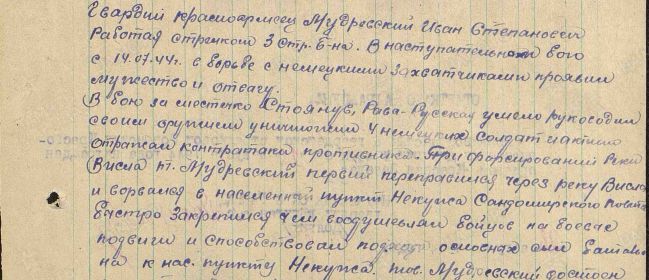 Гвардии красноармеец Мудревский Иван Степанович
Работая стрелком 3 стр. б-на. В наступательном бою
с 14.07.44г. в борьбе с немецкими захватчиками проявил
мужество и отвагу.
В бою за местечко Стоянув, Рава-Русская умело руководил
своим оружием уничтожил 4 немецких солдат и активно
отражал контратаки противника. При форсировании Реки
Висла т. Мудревский первый переправился через реку Висла
и ворвался в населенный пункт Некужа Сандомирского Повета
быстро закрепился чем воодушевлял бойцов на боевые
подвиги и способствовал подходу основных сил батальо
на к нас. пункту Некужа. тов. Мудревский достоен